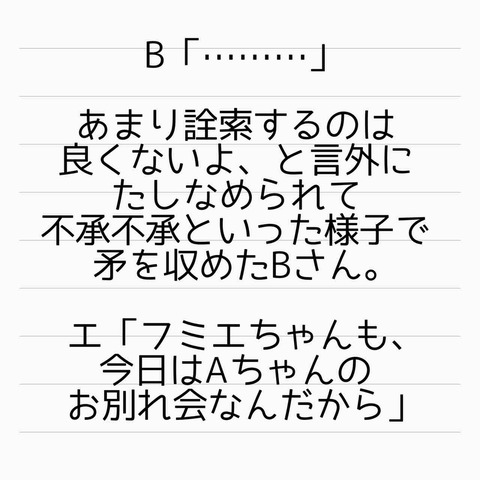 B「………」
あまり詮索するのは
良くないよ、と言外に
たしなめられて
不承不承といった様子で
矛を収めたBさん。
エ「フミエちゃんも、
今日はAちゃんの
お別れ会なんだから」